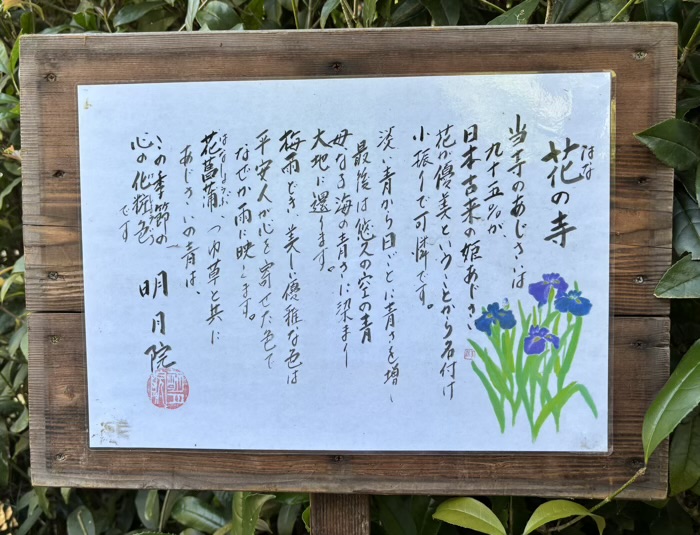 花の寺
はな
当寺のあじさいは
九十五%が、
日本古来の姫あじさい
花が優美ということから名付け
小振りで可憐です。
淡い青から日ごとに青さを増し
最後は悠久の空の青
母なる海の青さに染まり
大地に還ります。
梅雨どき、美しい優雅な色は
平安人が心を寄せた色で
なぜか雨に映えます。
はなしょうぶ
花菖蒲、つゆ草と共に
あじさいの青は、
この季節の
心の化粧色です
明月院